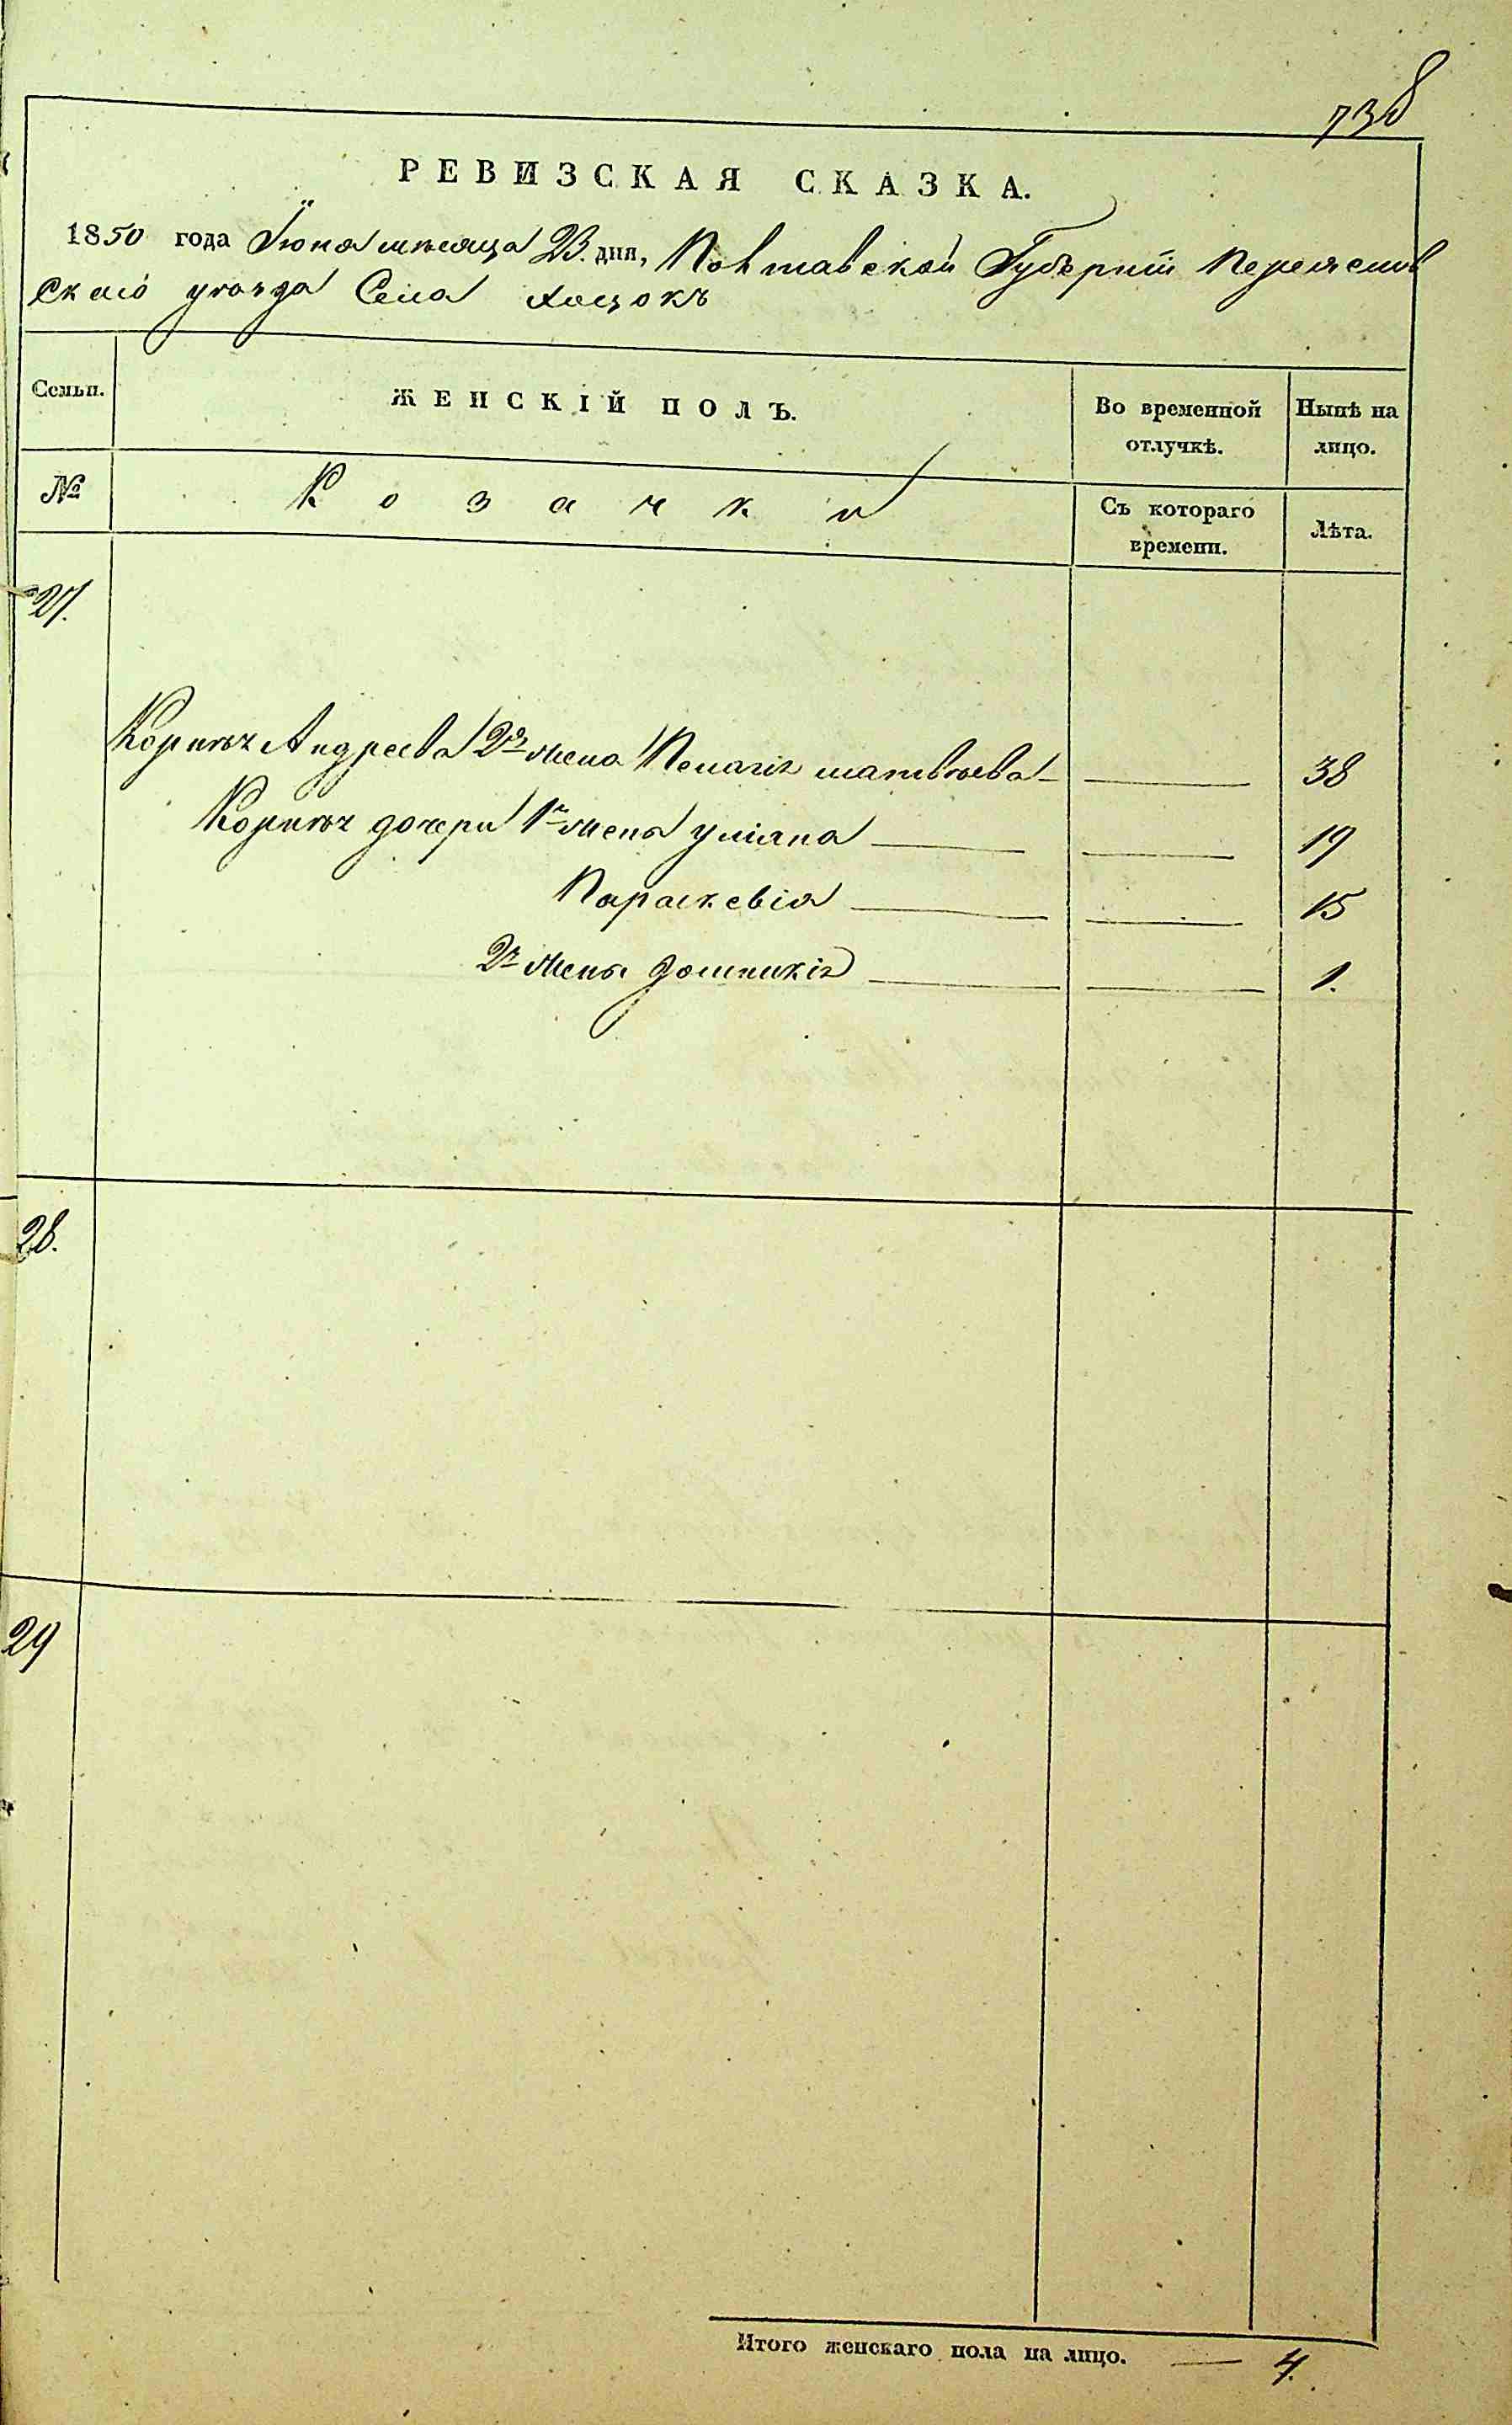 738
РЕВИЗСКАЯ СКАЗКА.
1850 года Іюня мѣсяца 23. дня, Полтавской Губерніи Переяслов
скаго уѣзда Села Хоцокъ
Семьи.
ЖЕНСКІЙ ПОЛЪ.
Во временной отлучкѣ.
Нынѣ на лицо.
№
Козачки
Съ котораго времени.
Лѣта.
27.
Корнѣя Андреева 2я жена Пелагія матвѣева 38
Корнѣя дочери 1й жены уліана 19
Параскевія 15
2й жены домникія 1.
28.
29
Итого женскаго пола на лицо. 4.